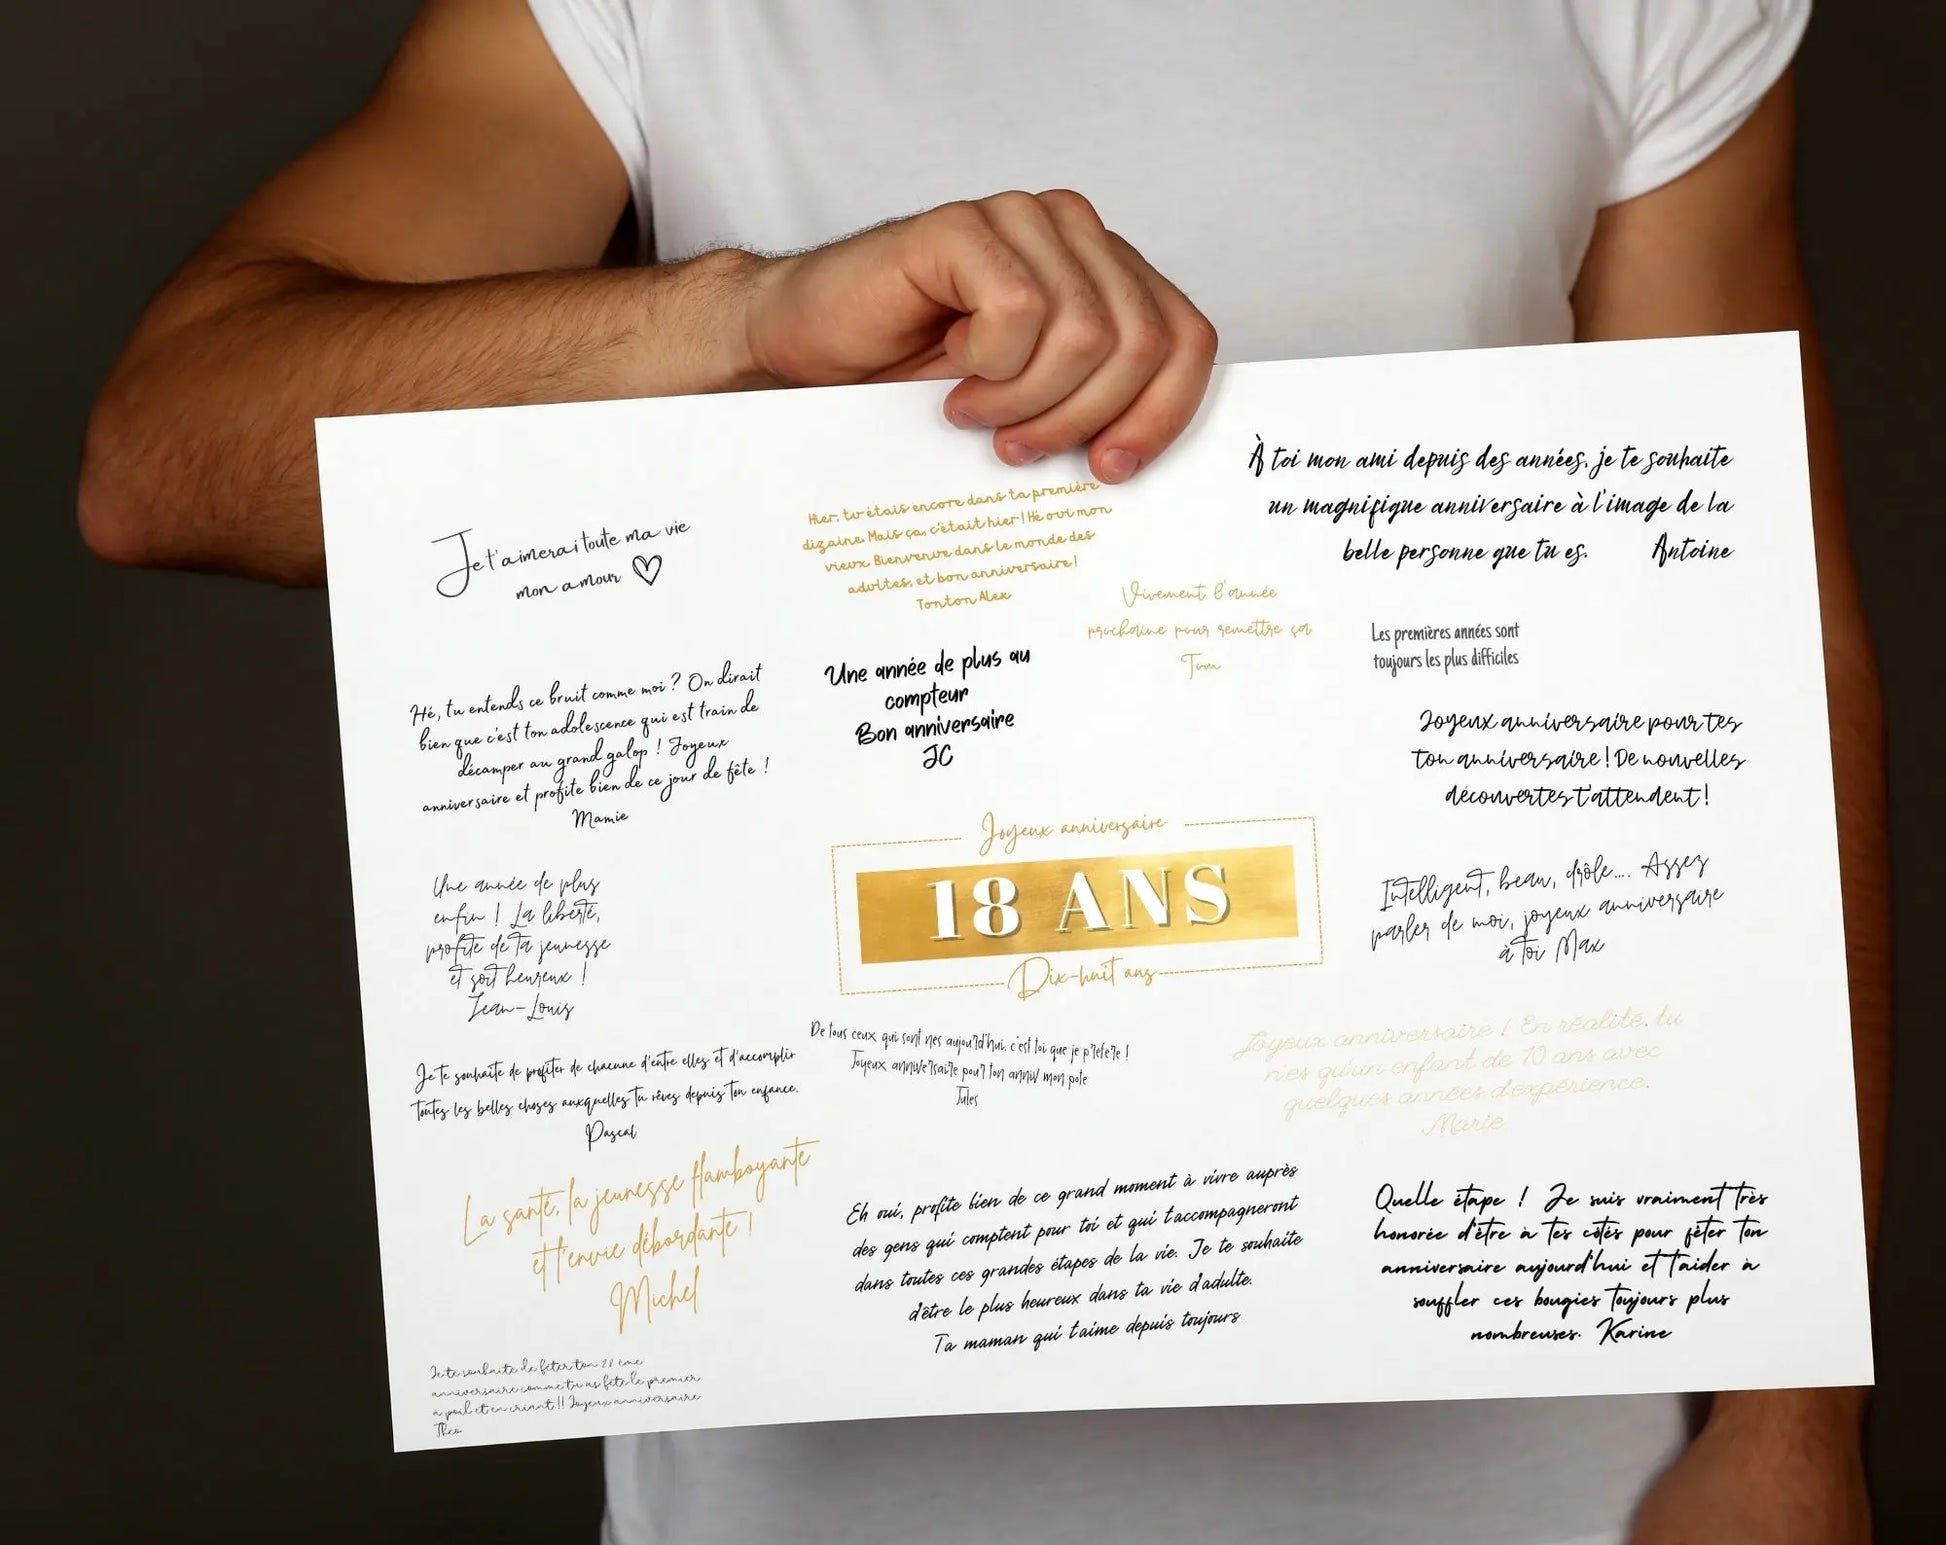 Je t'aimerai toute ma vie
mon amour
Hier, tu étais encore dans ta première
dizaine. Mais ça, c'était hier ! Hé oui mon
vieux. Bienvenue dans le monde des
adultes, et bon anniversaire !
Tonton Alex
À toi mon ami depuis des années, je te souhaite
un magnifique anniversaire à l'image de la
belle personne que tu es. Antoine
Vivement l'année
prochaine pour remettre ça
Tom
Les premières années sont
toujours les plus difficiles
Hé, tu entends ce bruit comme moi ? On dirait
bien que c'est ton adolescence qui est train de
décamper au grand galop ! Joyeux
anniversaire et profite bien de ce jour de fête !
Mamie
Une année de plus au
compteur
Bon anniversaire
JC
Joyeux anniversaire pour tes
ton anniversaire ! De nouvelles
découvertes t'attendent !
Une année de plus
enfin ! La liberté,
profite de ta jeunesse
et soit heureux !
Jean-Louis
Joyeux anniversaire
18 ANS
Dix-huit ans
Intelligent, beau, drôle.... Assez
parler de moi, joyeux anniversaire
à toi Max
Je te souhaite de profiter de chacune d'entre elles et d'accomplir
toutes les belles choses auxquelles tu rêves depuis ton enfance.
Pascal
De tous ceux qui sont nes aujourd'hui, c'est toi que je prefere !
Joyeux anniversaire pour ton anniv mon pote
Jules
Joyeux anniversaire ! En réalité, tu
n'es qu'un enfant de 10 ans avec
quelques années d'expérience.
Marie
La santé, la jeunesse flamboyante
et l'envie débordante !
Michel
Eh oui, profite bien de ce grand moment à vivre auprès
des gens qui comptent pour toi et qui t'accompagneront
dans toutes ces grandes étapes de la vie. Je te souhaite
d'être le plus heureux dans ta vie d'adulte.
Ta maman qui t'aime depuis toujours
Quelle étape ! Je suis vraiment très
honorée d'être à tes côtés pour fêter ton
anniversaire aujourd'hui et t'aider à
souffler ces bougies toujours plus
nombreuses. Karine
Je te souhaite de fêter ton ème
anniversaire comme tu as fêté le premier
a poil et en criant !! Joyeux anniversaire
Théo